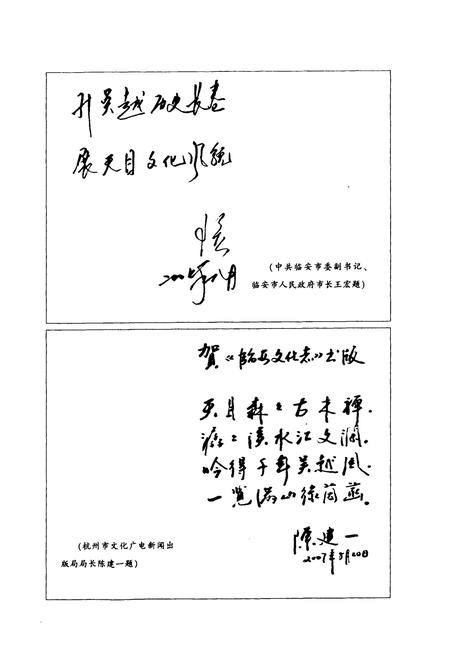 升吴越历史长卷
展天目文化风貌
二〇〇七年八月
(中共临安市委副书记、
临安市人民政府市长王宏题)
贺《临安文化志》出版
天目森森古木禅。
溪水江文澜。
吟得千年吴越风。
一览满山绿茵茵。
陈建一
2007年8月20日
(杭州市文化广电新闻出
版局局长陈建一题)